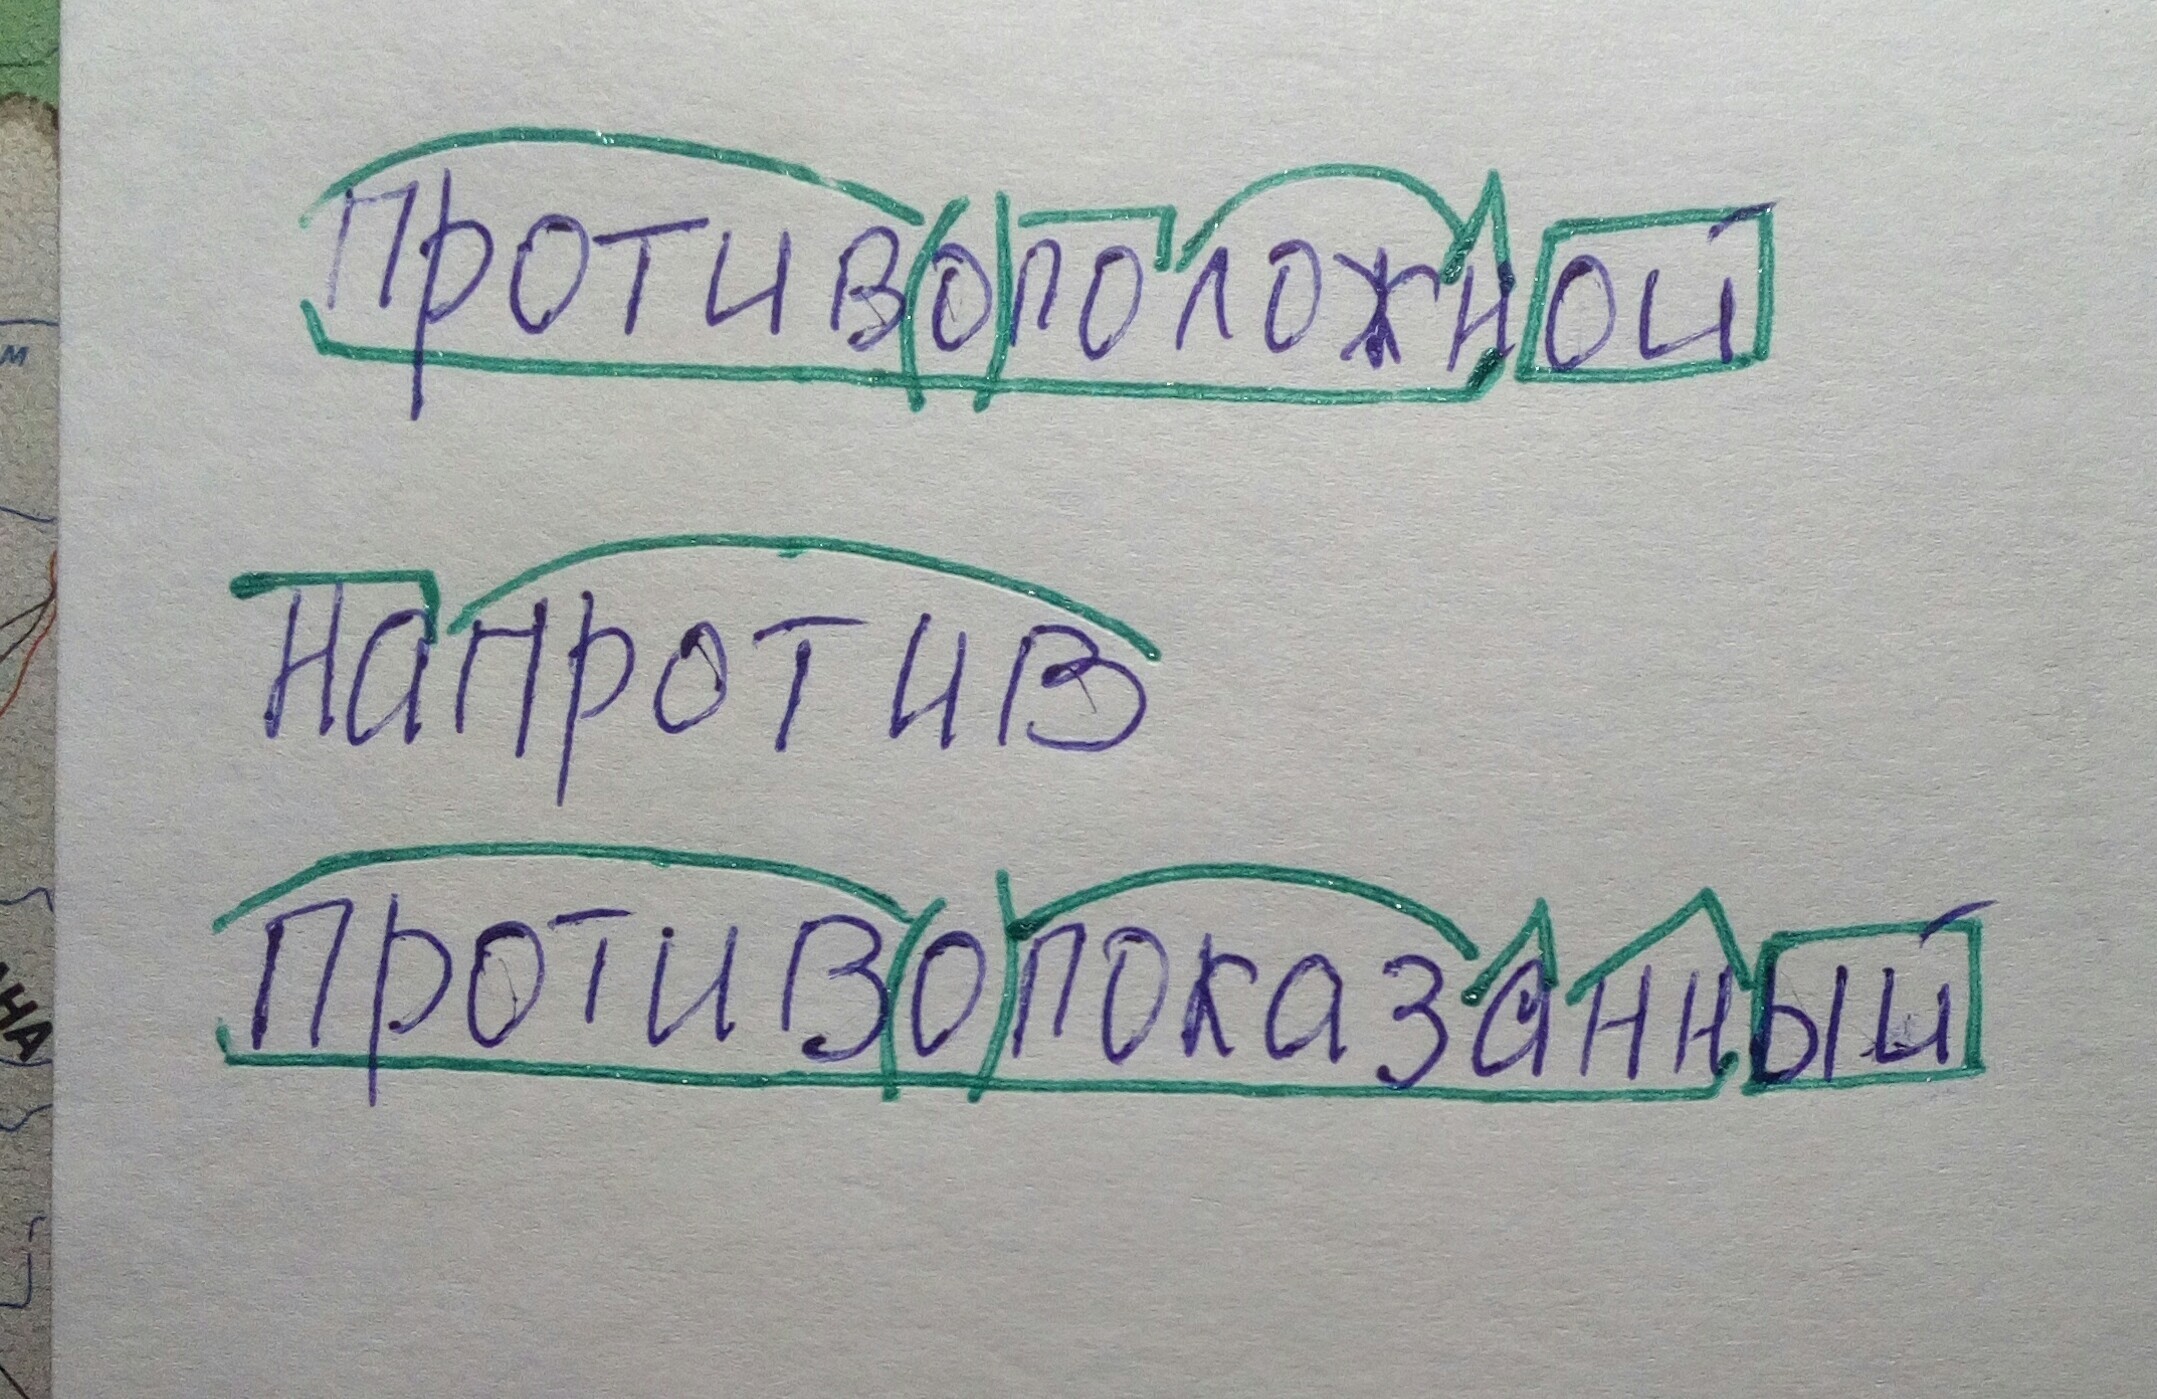 Противоположной
Напротив
Противопоказанный
м
НА